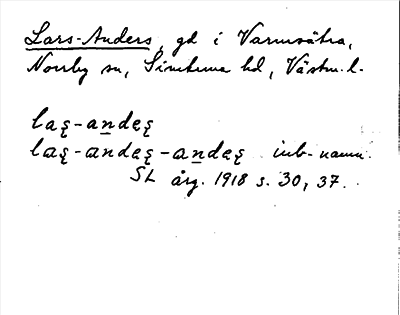 Lars-Anders, gd i Varmsätra,
Norrby sn, Simtuna hd, Västm. l.
laş-andeş
laş-andeş-andeş inb-namn.
SL årg. 1918 s. 30, 37.